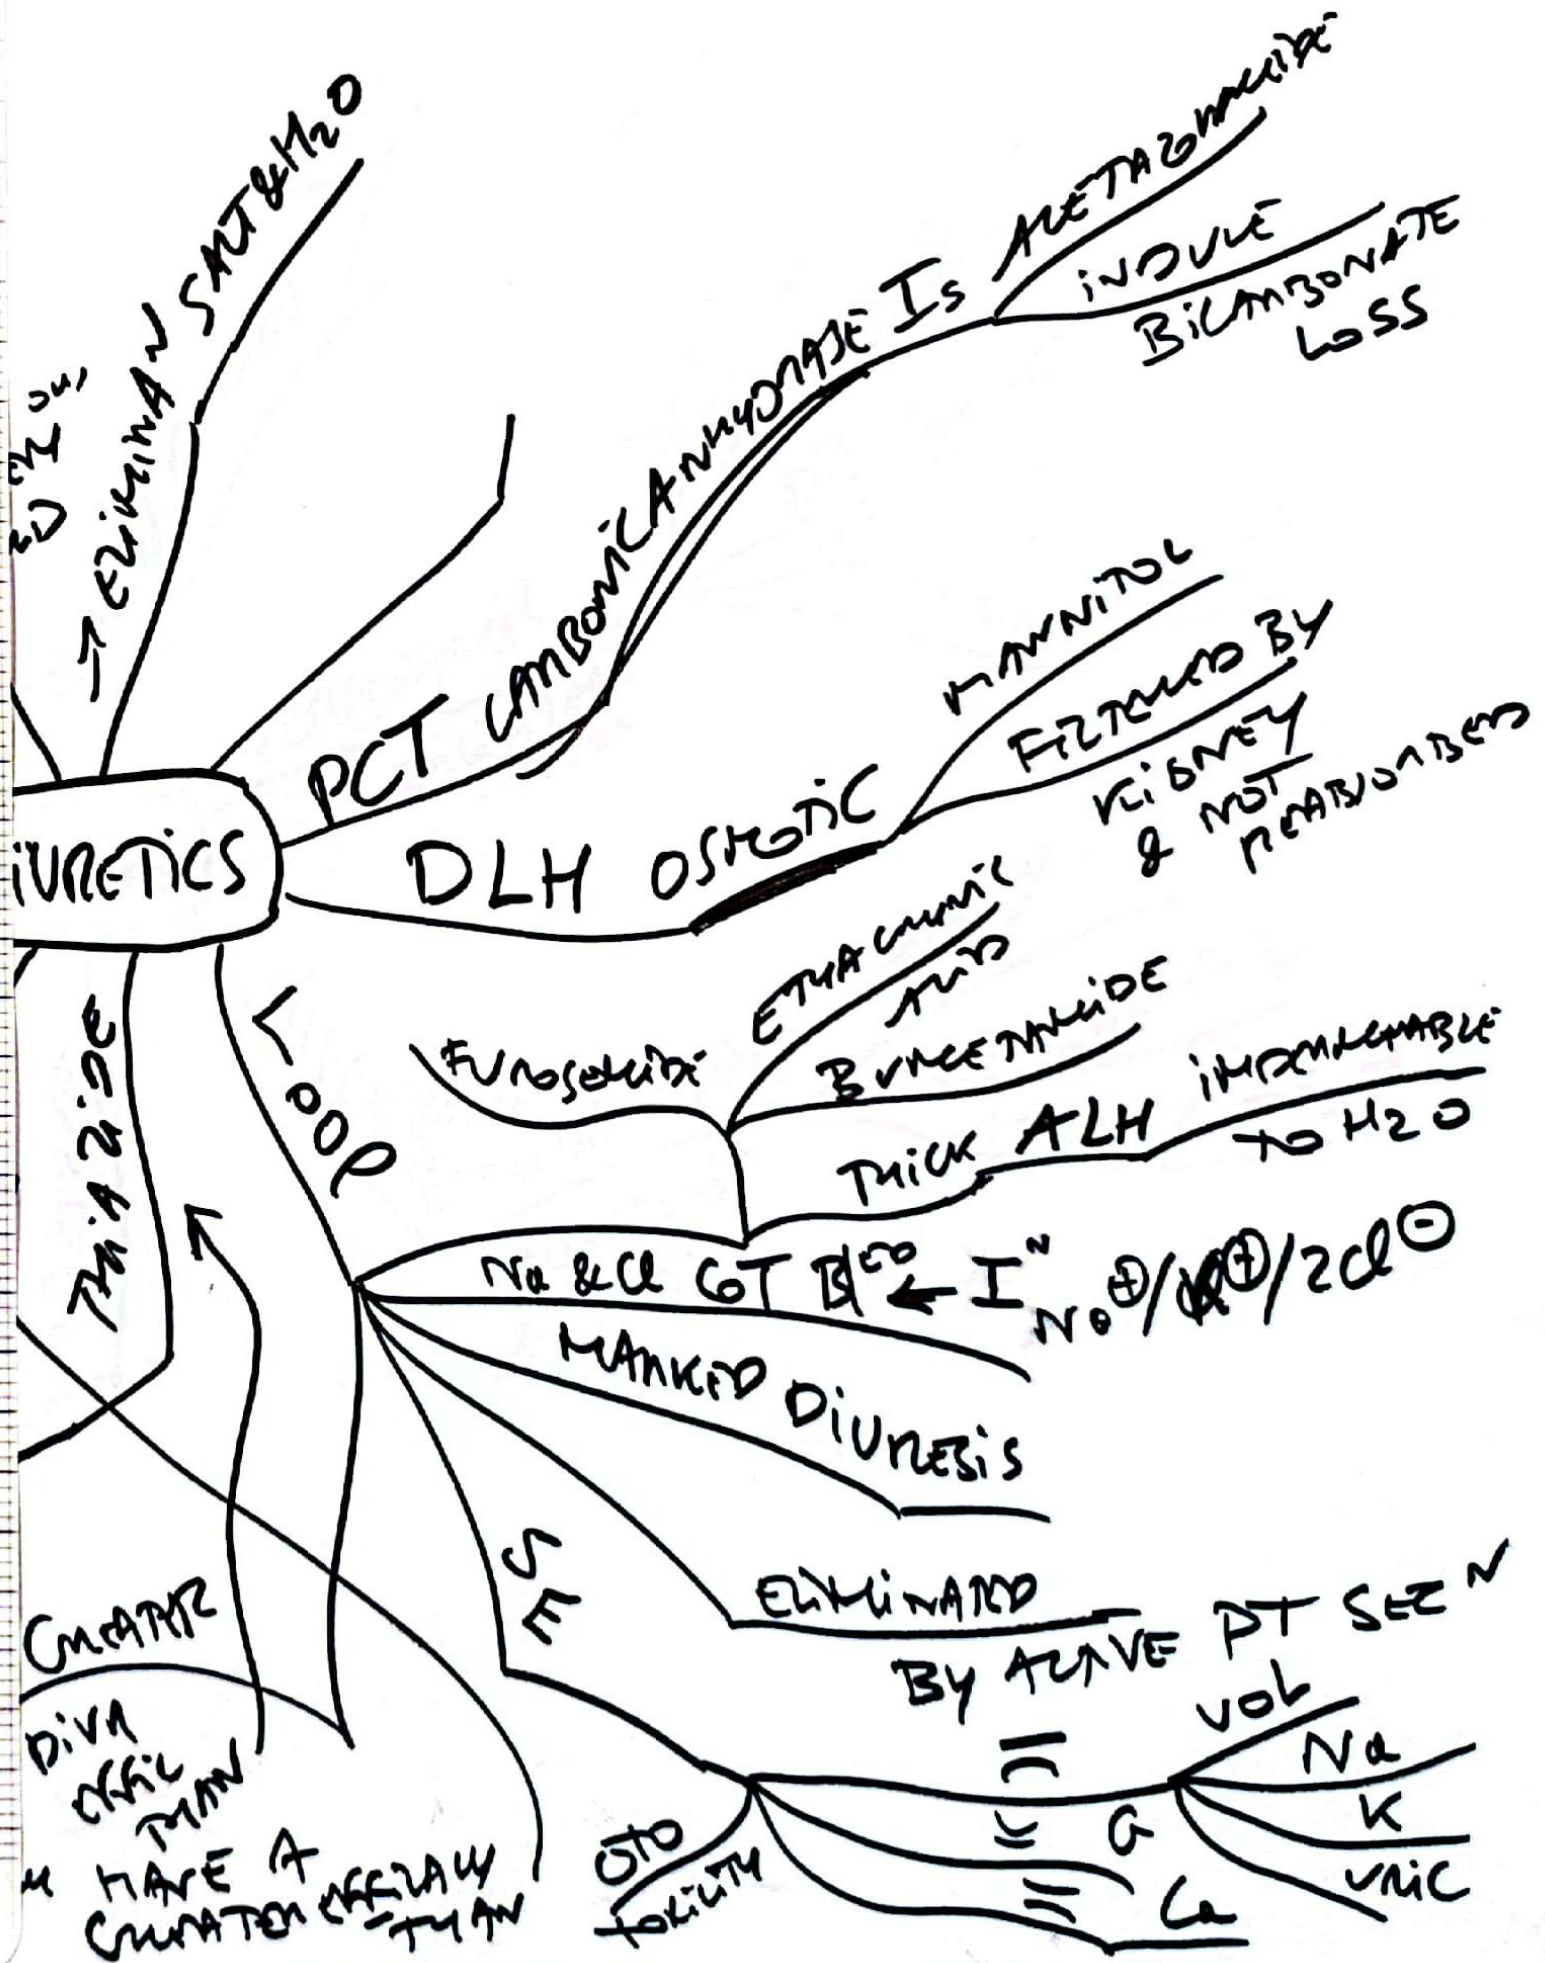 SALT & H2O
→
PCT
CARBONIC ANHYDRASE Is
ACETAZOLAMIDE
INDUCE
BICARBONATE
LOSS
DIURETICS
DLH OSMOTIC
MANNITOL
FILTERED BY
KIDNEY
& NOT
REABSORBED
LOOP
FUROSEMIDE
ETHACRYNIC
ACID
BUMETANIDE
THICK ALH IMPERMEABLE
TO H2O
Na & Cl COT ← I^N
Na⊕/K⊕/2Cl⊖
MARKED DIURESIS
ELIMINATED
BY ACTIVE PT SEC^N
SE
OTO
TOXICITY
VOL
Na
K
URIC
G
Ca
THIAZIDE
GREATER
DIUR
EFFIC
THAN
HAVE A
GREATER EFFICACY
THAN